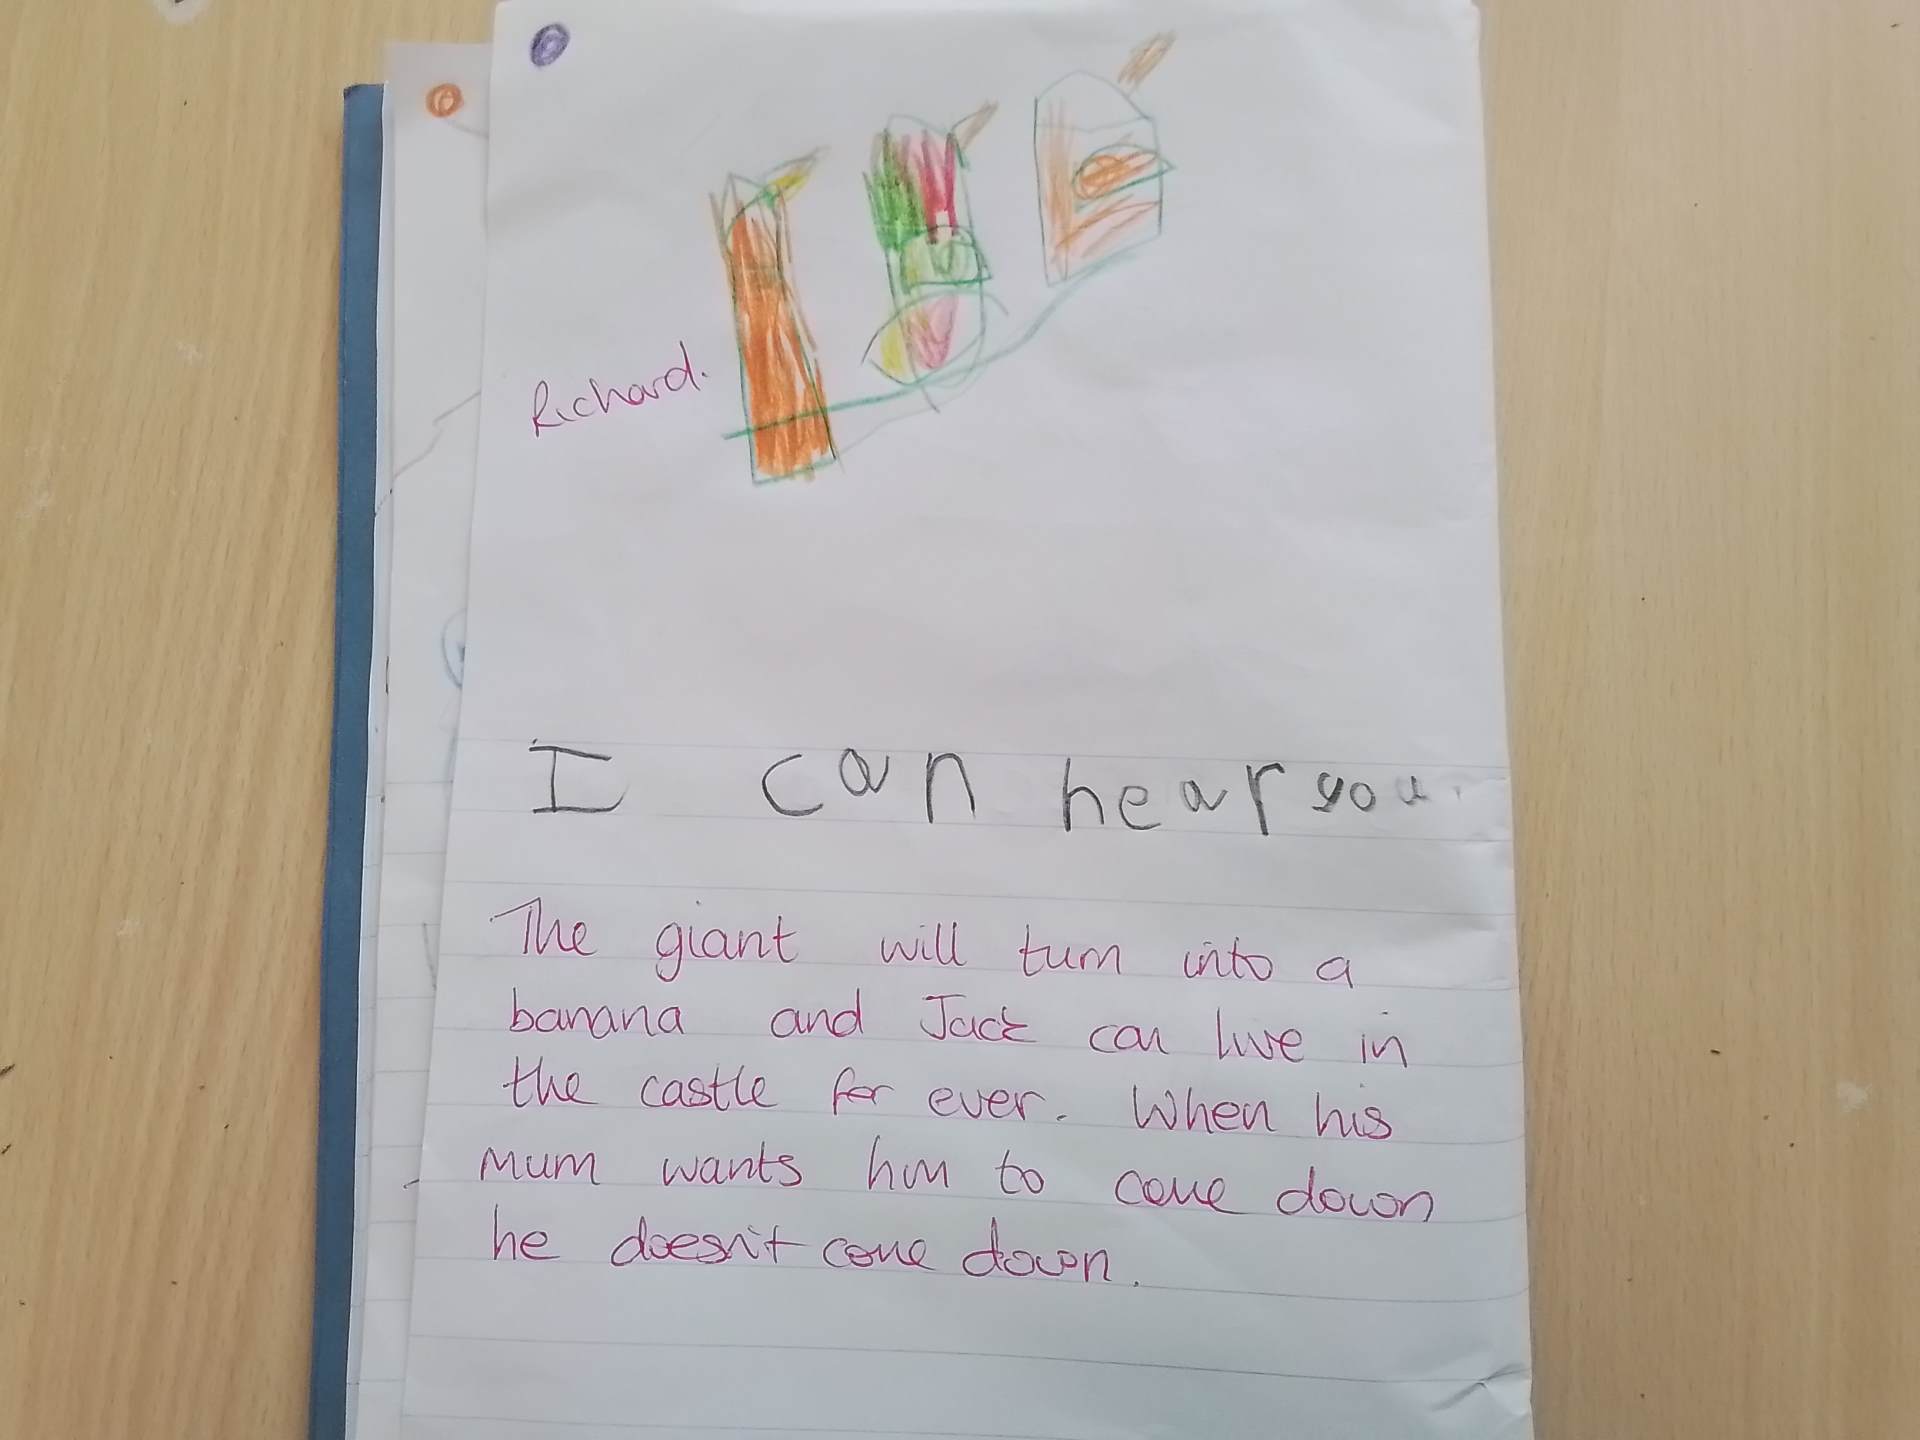 Richard.
I can hear you.
The giant will turn into a
banana and Jack can live in
the castle for ever. When his
mum wants him to come down
he doesn't come down.